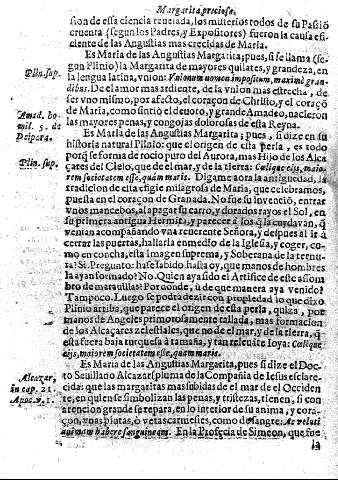 Margarita preciosa,
sion de esta ciencia reuelada, los misterios todos de su Passiõ
cruenta (segun los Padres, y Expositores) fueron la causa efi-
ciente de las Angustias mas crecidas de Maria.
Es Maria de las Angustias Margarita, pues, si se llama (se-
Plin. sup.
gun Plinio) la Margarita de mayores quilates, y grandeza, en
la lengua latina, vnion: Vnionum nomen impositum, maximè gran-
dibus. De el amor mas ardiente, de la vnion mas estrecha, de
ser vno mismo, por afecto, el coraçon de Christo, y el coraçõ
Amad. ho-
de Maria, como sintiò el deuoto, y grande Amadeo, nacieron
mil. 5. de
las mayores penas, y congojas dolorosas de esta Reyna.
Deipara.
Es Maria de las Angustias Margarita; pues, si dize en su
historia natural Plinio: que el origen de esta perla, es todo
Plin. sup.
porq̃ se forma de rocio puro del Aurora, mas Hijo de los Alca-
çares del Cielo, que de el mar, y de la tierra: Cælique eijs, maio-
rem societatem esse, quàm maris. Digame aora la antiguedad, la
tradicion de esta efigie milagrosa de Maria, que celebramos,
puesta en el coraçon de Granada. No fue su invenciõ, entrar
vnos mancebos, al apagar su carro, y dorados rayos el Sol, en
su primera antigua Hermita, y parecer à los q̃ la cuydavan, q̃
venian acompañando vna reuerente Señora, y despues al ir à
cerrar las puertas, hallarla en medio de la Iglesia, y coger, co-
mo en concha, esta Imagen suprema, y Soberana de la ternu-
ra? Si. Pregunto: ha se sabido hasta oy, que manos de hombres
la ayan formado? No. Quien aya sido el Artifice de este assom-
bro de marauillas? Por donde, ù de que manera aya venido?
Tampoco. Luego se podrà dezir con propiedad lo que dixo
Plinio arriba, que parece el origen de esta perla, quiza, por
manos de Angeles primorosamente tallada, mas formacion
de los Alcaçares celestiales, que no de el mar, y de la tierra, q̃
esta fuera baja turquesa à tamaña, y tan releuãte Ioya: Cælique
eijs, maiorem societatem esse, quam maris.
Es Maria de las Angustias Margarita, pues si dize el Doc-
Alcazar,
to Seuillano Alcazar pluma de la Compañia de Iesus esclare-
in cap. 21.
cida: que las margaritas mas subidas de el mar de el Occiden-
Apoc. v. 1.
te, en quien se simbolizan las penas, y tristezas, tienen, si con
atencion grande se repara, en lo interior de su anima, y cora-
çon, vnas pintas, ò vetas carmesies, como de sangre: Ac veluti
animam habere sanguineam. En la Profecia de Simeon, que fue
la